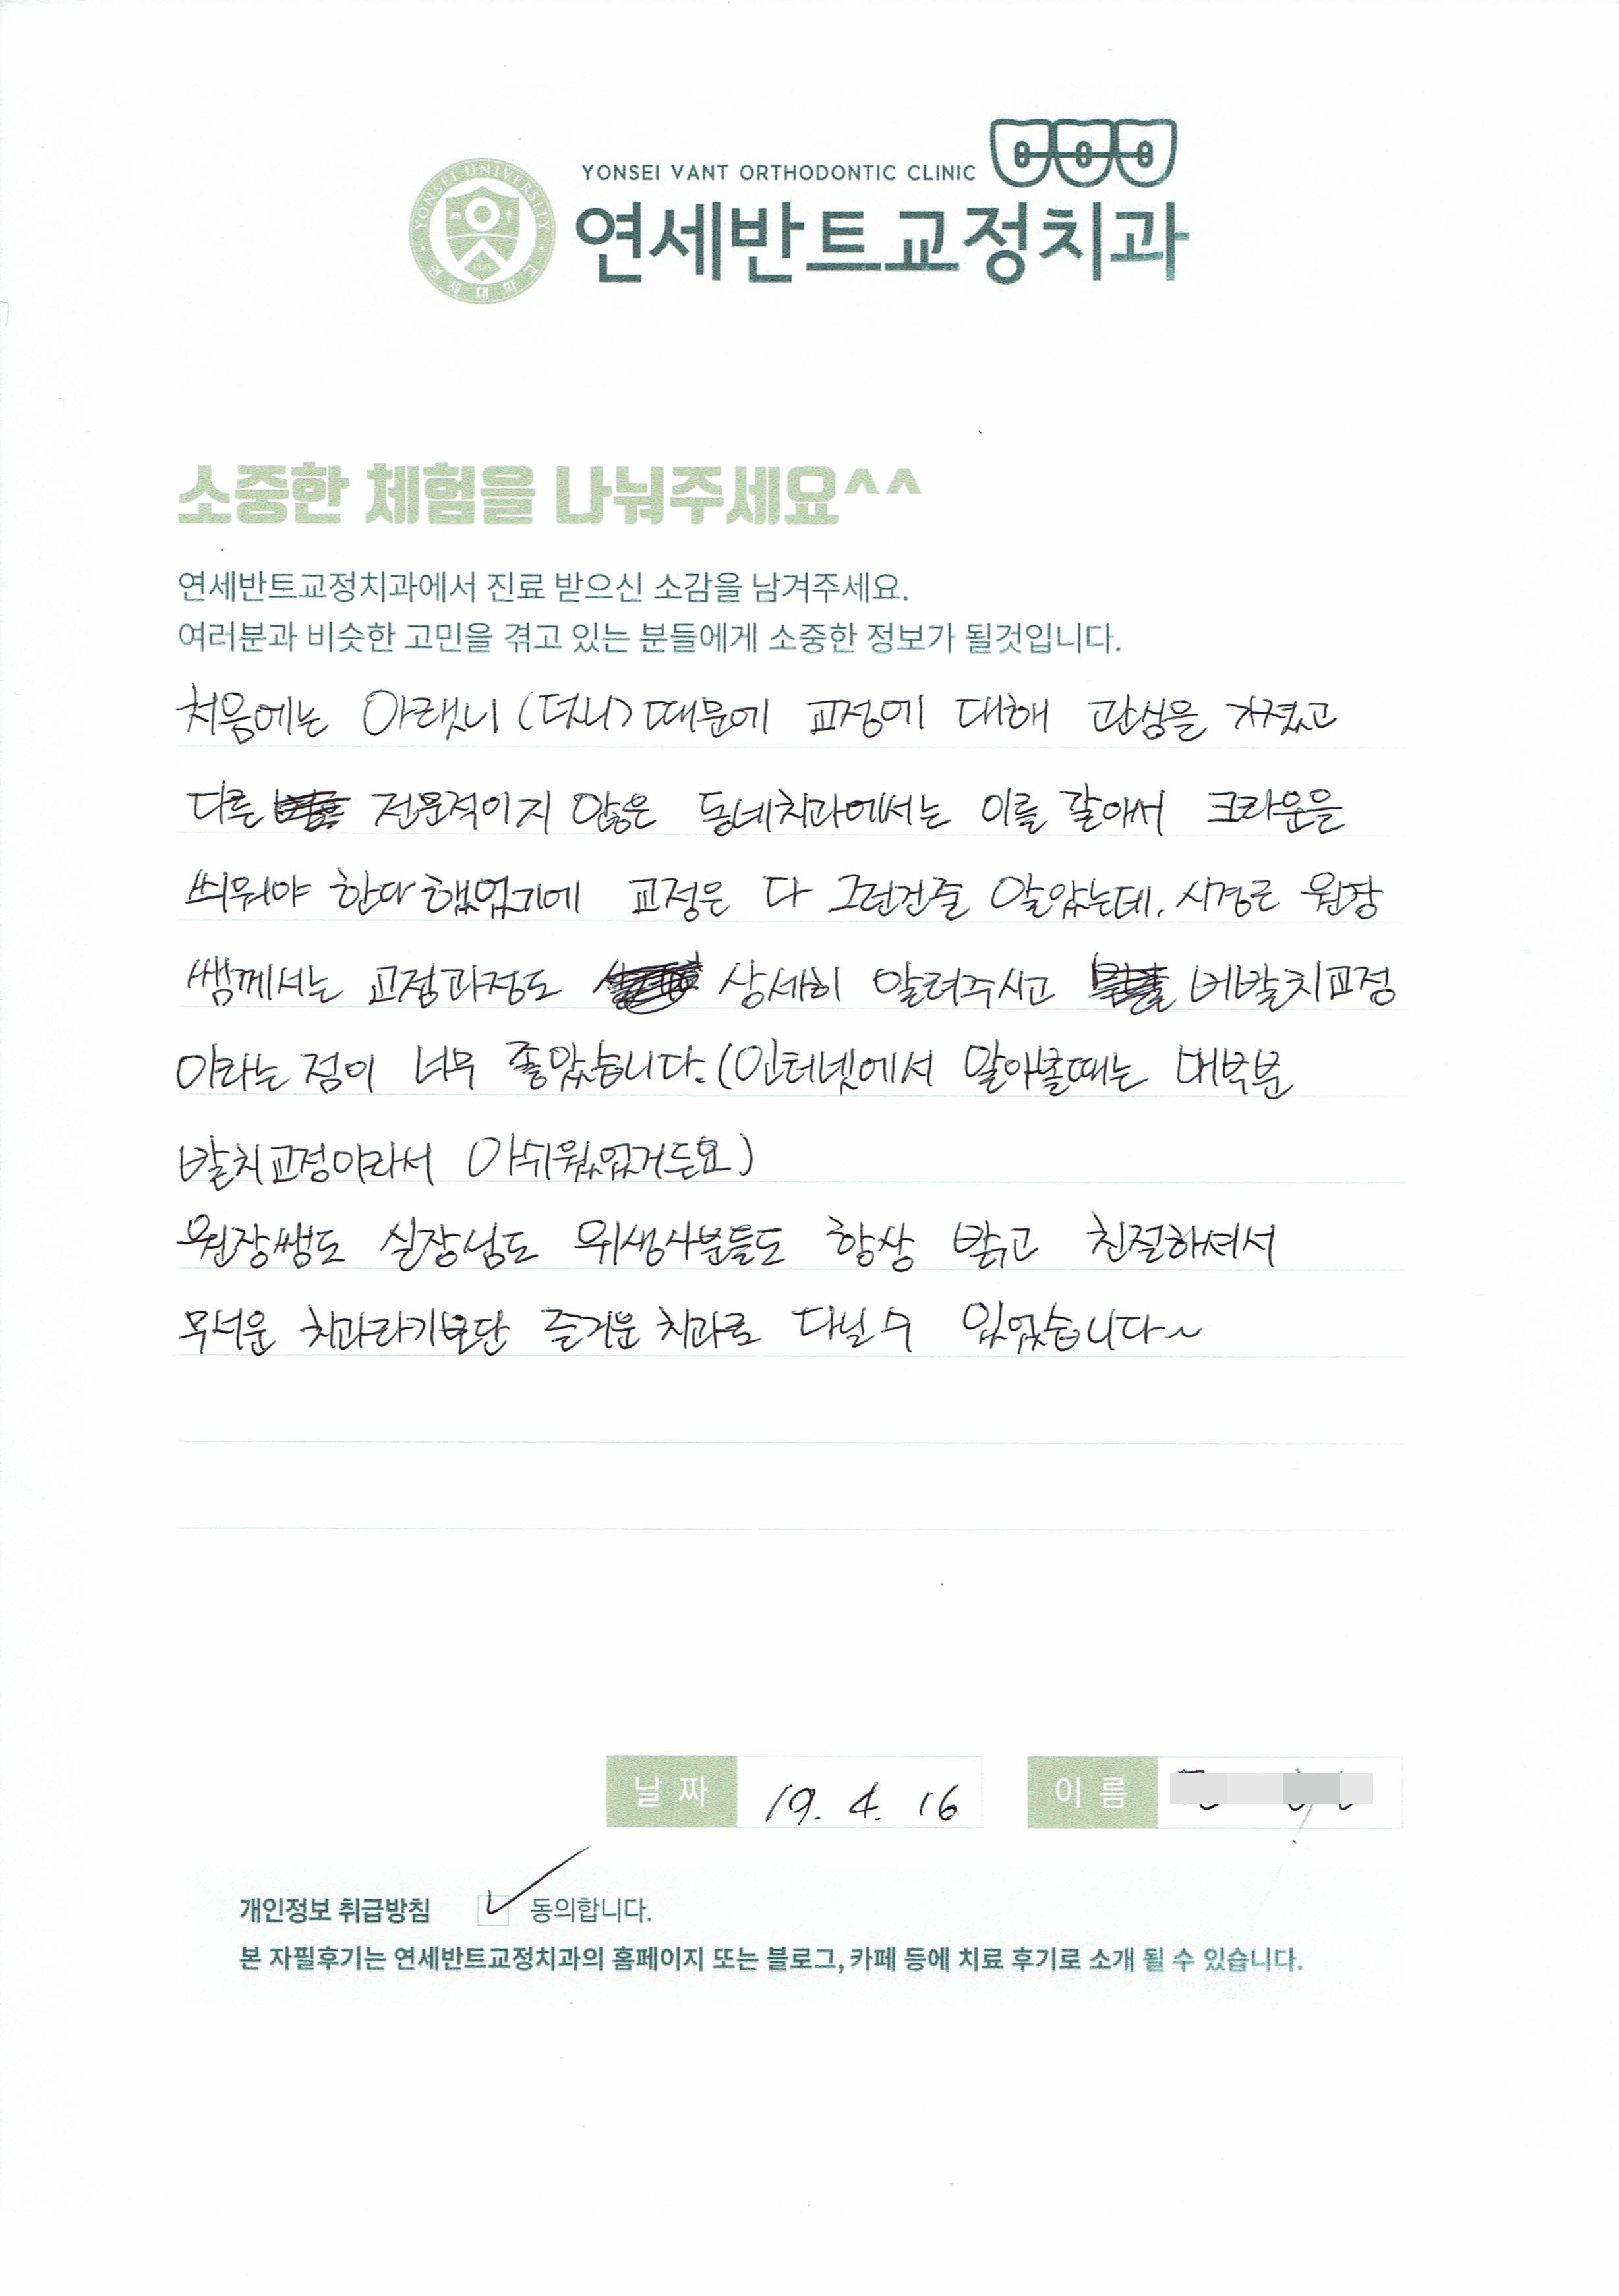 YONSEI VANT ORTHODONTIC CLINIC
YONSEI UNIVERSITY
1885
연세대학교
연세반트교정치과
소중한 체험을 나눠주세요^^
연세반트교정치과에서 진료 받으신 소감을 남겨주세요.
여러분과 비슷한 고민을 겪고 있는 분들에게 소중한 정보가 될것입니다.
처음에는 아랫니 (덧니) 때문에 교정에 대해 관심을 가졌고
다른 전문적이지 않은 동네치과에서는 이를 갈아서 크라운을
씌워야 한다 했었기에 교정은 다 그런건줄 알았는데, 시경근 원장
쌤께서는 교정과정도 상세히 알려주시고 비발치교정
이라는 점이 너무 좋았습니다. (인터넷에서 알아볼때는 대부분
발치교정이라서 아쉬웠었거든요)
원장쌤도 실장님도 위생사분들도 항상 밝고 친절하셔서
무서운 치과라기보단 즐거운 치과로 다닐수 있었습니다~
날짜 19. 4. 16 이름
개인정보 취급방침 동의합니다.
본 자필후기는 연세반트교정치과의 홈페이지 또는 블로그, 카페 등에 치료 후기로 소개 될 수 있습니다.